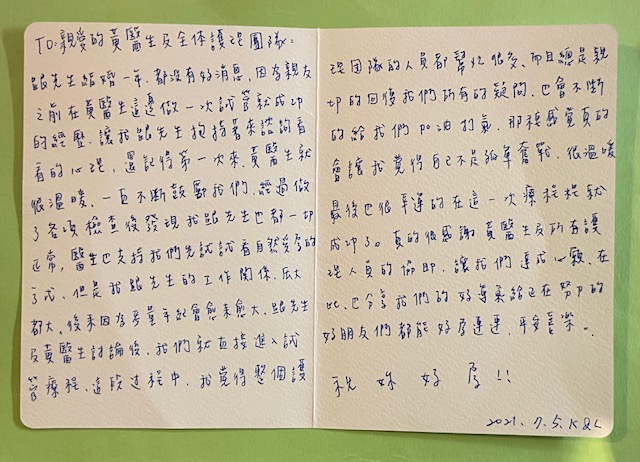 TO:親愛的黃醫生及全体護理團隊:
跟先生結婚一年,都沒有好消息,因為親友
之前在黃醫生這邊做一次試管就成功
的經歷,讓我跟先生抱持著來諮詢看
看的心理,還記得第一次來,黃醫生就
很溫暖、一直不斷鼓勵我們,經過做
了各項檢查後發現我跟先生也都一切
正常,醫生也支持我們先試試看自然受孕的
方式,但是我跟先生的工作關係,
都大,後來因為考量年紀會愈來愈大,跟先生
及黃醫生討論後,我們就直接進入試
管療程,這段过程中,我覺得整個護
理团隊的人員都幫忙很多、而且總是親
切的回復我們所有的疑問,也會不斷
的給我們加油打氣,那種感覺真的
會讓我覺得自己不是孤單奮戰,很溫暖
最後也很幸運的在這一次療程程就
成功了。真的很感謝黃醫生及所有護
理人員的協助,讓我們達成心願,在
此,也分享我們的好孕氣給正在努力的
好朋友們都能好孕連連,平安喜樂。
祝 妳 好 孕!!
2021.7.5.K&L